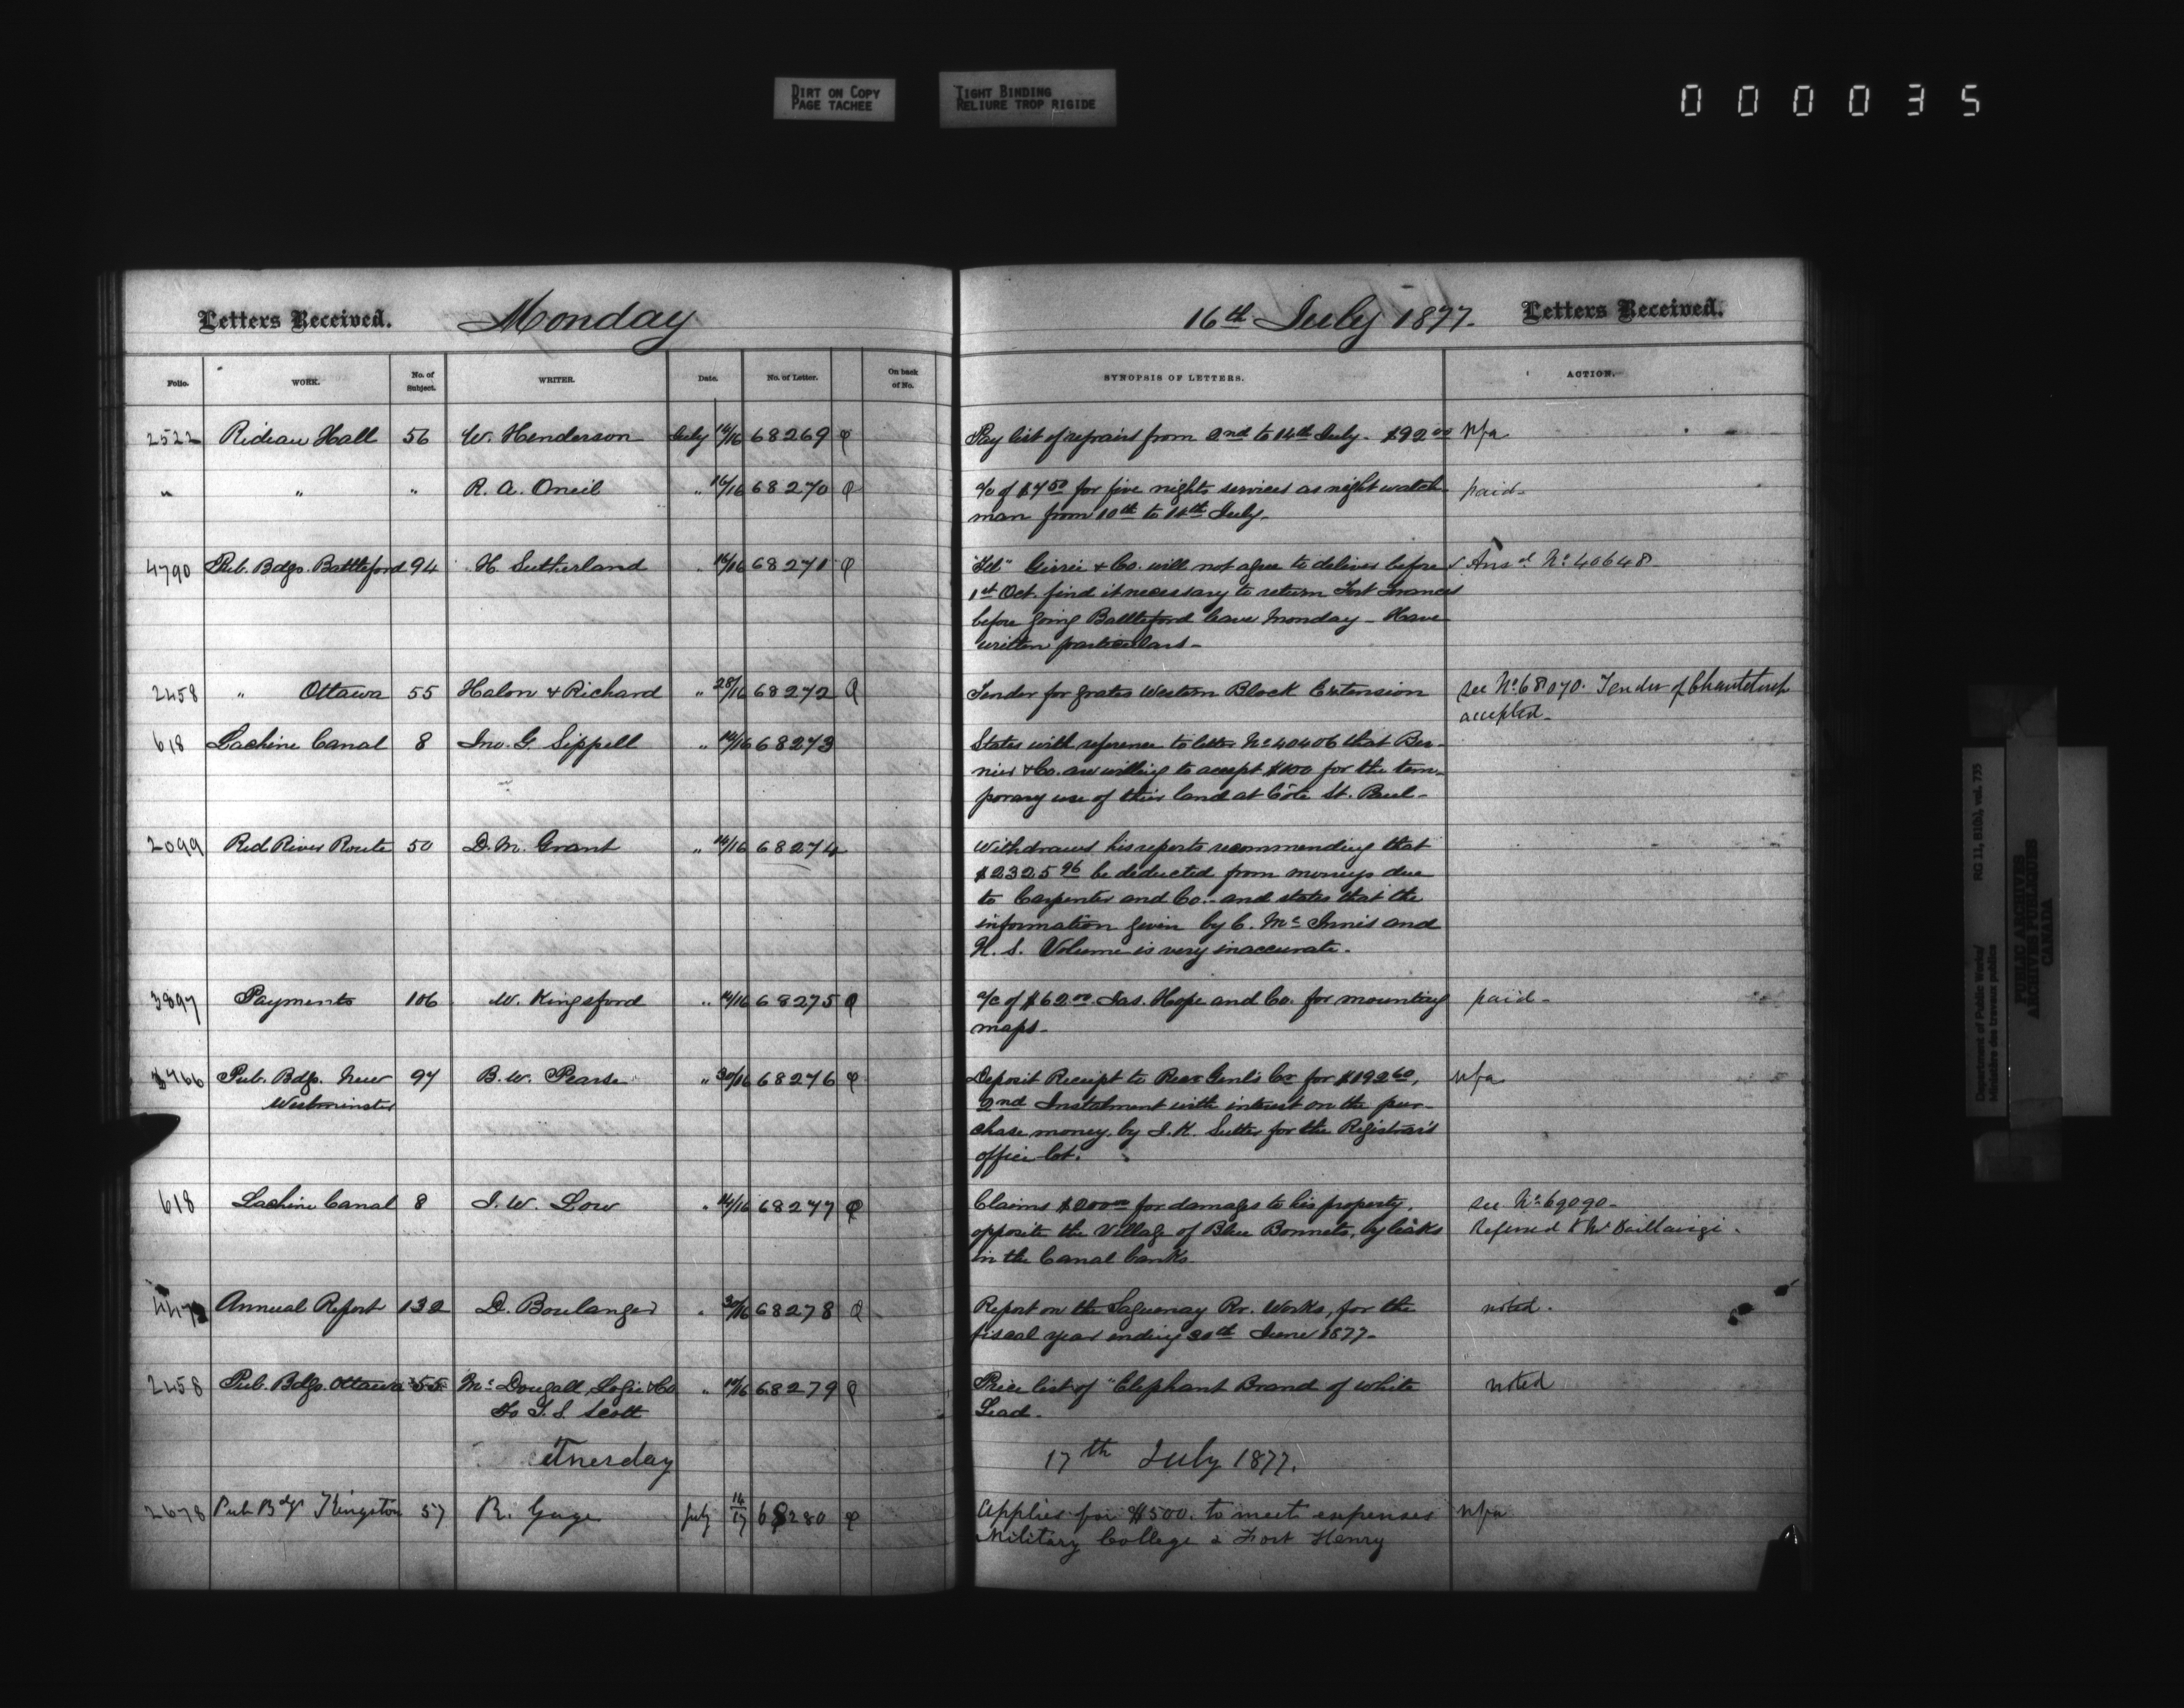 DIRT ON COPY
PAGE TACHEE
TIGHT BINDING
RELIURE TROP RIGIDE
000035
Letters Received. Monday 16th July 1877. Letters Received.
Folio. WORK. No. of Subject. WRITER. Date. No. of Letter. On back of No. SYNOPSIS OF LETTERS. ACTION.
2522 Rideau Hall 56 W. Henderson July 14/16 68269 Pay list of repairs from 2nd to 14th July. $92 00 Nfa
" " " R. A. Oneil " 16/16 68270 a/c of $7 50 for five nights services as night watch
man from 10th to 14th July. paid
4790 Pub. Bdgs. Battleford 94 H. Sutherland " 16/16 68271 "Tel" & Co. will not agree to deliver before Ansd No. 40648
1st Oct. find it necessary to return Fort Frances
before going Battleford leave Monday - Have
written particulars -
2458 " Ottawa 55 Halon & Richard " 28/16 68272 Tender for grates Western Block Extension see No. 68070. Tender of
accepted -
618 Lachine Canal 8 Jno. G. Sippell " 14/16 68273 States with reference to letter No. 40406 that Ber-
nier & Co. are willing to accept $100 for the tem-
porary use of their land at Côte St. Paul -
2099 Red River Route 50 D. M. Grant " 14/16 68274 Withdraws his reports recommending that
$2325 96 be deducted from moneys due
to Carpenter and Co. - and states that the
information given by C. McInnis and
H. S. Volume is very inaccurate.
3897 Payments 106 W. Kingsford " 14/16 68275 a/c of $62 00 Jas. Hope and Co. for mounting paid -
maps -
Pub. Bdgs. New 97 B. W. Pearse " 30/16 68276 Deposit Receipt to Recr Genl's Cr for $192 60, Nfa
Westminster 2nd Instalment with interest on the pur-
chase money by J. K. Suter for the Registrar's
office lot.
618 Lachine Canal 8 J. W. Low " 14/16 68277 Claims $200 00 for damages to his property, see No. 69090 -
opposite the Village of Blue Bonnets, by leaks Referred to Mr
in the Canal banks.
Annual Report 132 D. Boulanger " 30/16 68278 Report on the Saguenay Rr. Works, for the noted.
fiscal year ending 30th June 1877 -
2458 Pub. Bdgs. Ottawa 55 McDougall, Logie & Co " 14/16 68279 Price list of "Elephant Brand of white noted
To T. S. Scott Lead -
Tuesday 17th July 1877.
2678 Pub Bdgs Kingston 57 R. Gage July 14/17 68280 Applies for $500. to meet expenses Nfa
Military College & Fort Henry
Department of Public Works/ RG 11, B1(b), vol. 775
Ministère des travaux publics
PUBLIC ARCHIVES
ARCHIVES PUBLIQUES
CANADA